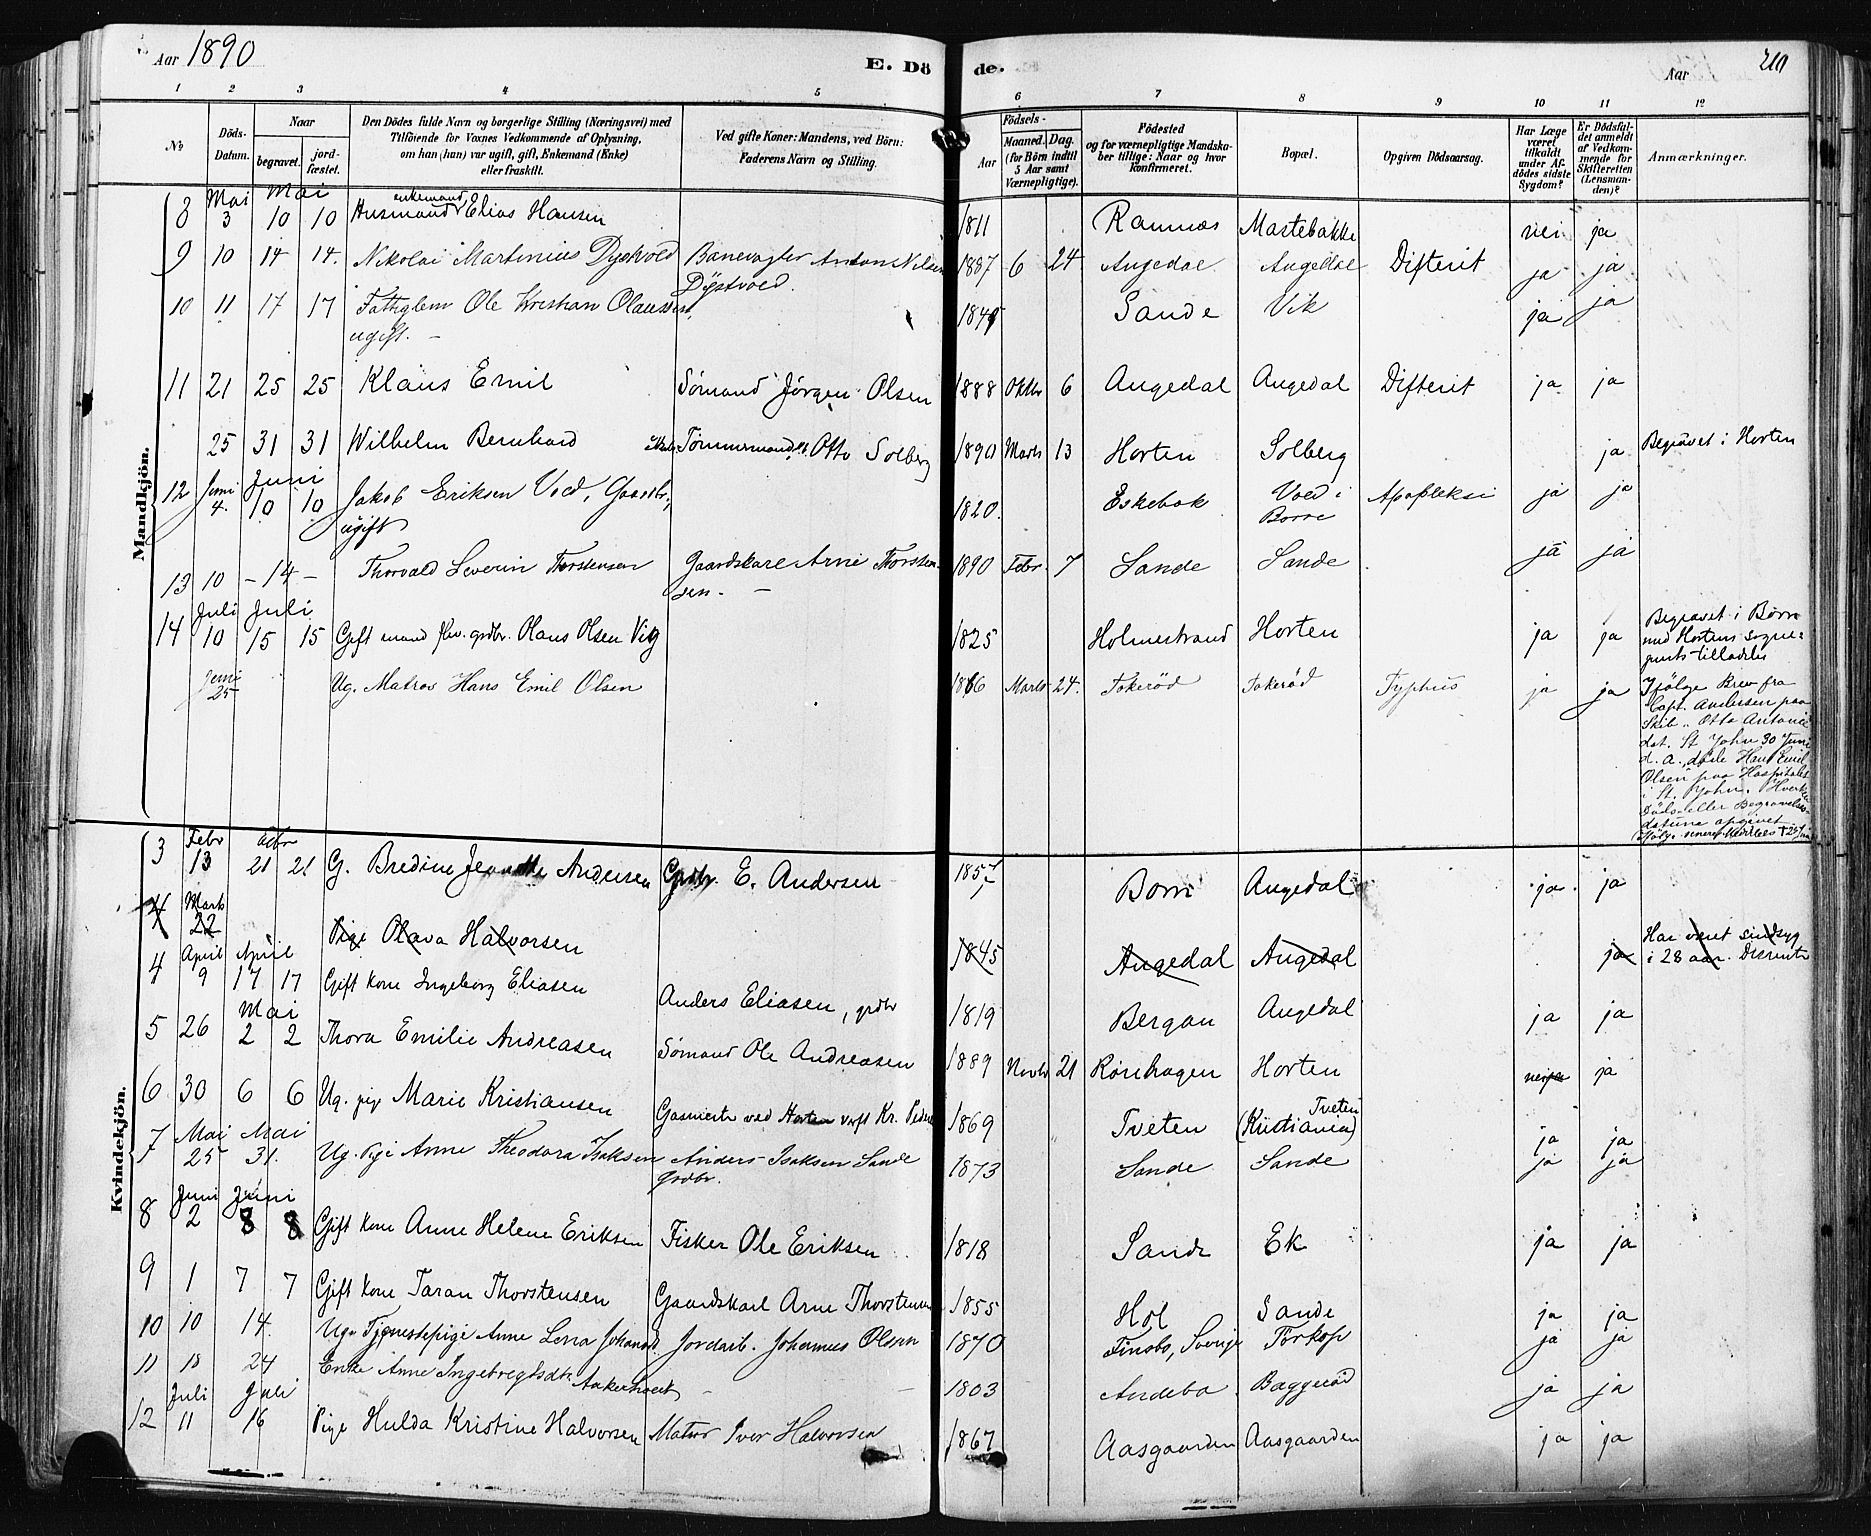 Aar 1890 E. Dö de. Aar 210
1 2 3 4 5 6 7 8 9 10 11 12
No Döds-Datum. Naar begravet. jord-fæstet. Den Dödes fulde Navn og borgerlige Stilling (Næringsvei) med Tilföiende for Voxnes Vedkommende af Oplysning, om han (hun) var ugift, gift, Enkemand (Enke) eller fraskilt. Ved gifte Koner: Mandens, ved Börn: Faderens Navn og Stilling. Födsels- Aar Maaned. Dag. (for Börn indtil 5 Aar samt Værnepligtige). Födested og for værnepligtige Mandskaber tillige: Naar og hvor konfirmeret. Bopæl. Opgiven Dödsaarsag. Har Læge været tilkaldt under Afdödes sidste Sygdom? Er Dödsfaldet anmeldt af Vedkommende for Skifteretten (Lensmanden)? Anmærkninger.
Mandkjön.
Mai Mai
8 3 10 10 Husmand enkemand, Elias Hansen 1811 Ramnæs Mastebakke nei ja
9 10 14 14. Nikolai Martinius Dystvold Banevogter Anton Nilsen 1887 6 24 Augedal Augedal Difterit ja ja
Dystvold.
10 11 17 17 Fattiglem Ole Kristian Olaussen, Sande Vik ja ja
ugift. -
11 21 25 25 Klaus Emil Sömand Jörgen Olsen 1888 Oktbr 6 Augedal Augedal Difterit ja ja
25 31 31 Wilhelm Bernhard Tömmermand Otto Solberg 1890 Marts 13 Horten Solberg ja Begravet i Horten
Juni Juni
12 4. 10 10 Jakob Eriksen Vold, Gaardbr., 1820. Eskebæk Vold i Borre Apopleksi ja ja
ugift
13 10 - 14 - Thorvald Severin Thorstensen Gaardskarl Arne Thorsten- 1890 Febr. 7 Sande Sande ja ja
sen. -
Juli Juli
14 10 15 15 Gift mand fhv. grdbr. Olaus Olsen Vig 1825 Holmestrand Horten ja ja Begravet i Borre
med Hortens sogne-
prests tilladelse
Juni
25 Ug. Matros Hans Emil Olsen 1866 Marts 24. Fokerød Fokerød Typhus ja ja Ifölge Brev fra
Capt. Andersen paa
Skib "Otto Antonie
dat. St John 30 Juni
d. A. døde Hans Emil
Olsen paa Hospitalet
i St. John. Hverken
Döds- eller Begravelses-
datum opgivet
Kvindekjön.
Febr
3 13 21 21 G. Bredine Jeanette Andersen Grdbr. E. Andersen 1857 Borre Augedal ja ja
Marts
4 22 Pige Olava Halvorsen 1845 Augedal Augedal ja Har været sindsyg
i 28 aar.
April April
4 9 17 17 Gift kone Ingeborg Eliasen Anders Eliasen, grdbr 1819 Bergan Augedal ja ja
Mai
5 26 2 2 Thora Emilie Andreasen Sömand Ole Andreasen 1889 Novbr 21 Rönhagen Horten ja
6 30 6 6 Ug. pige Marie Kristiansen 1869 Tveten Tveten (Kristiania) ja ja
Mai Mai
7 25 31. Ug. Pige Anne Theodora Isaksen Anders Isaksen Sande 1873 Sande Sande ja ja
grdbr.
Juni Juni
8 2 8 8 Gift kone Anne Helene Eriksen Fisker Ole Eriksen 1818 Sande Ek ja ja
9 1 7 7 Gift kone Taran Thorstensen Gaardskarl Arne Thorstensen 1855 Hol Sande ja ja
10 10 14. Ug. Tjenestepige Anne Lena Johansd. Jordarb. Johannes Olsson 1870 Finsbo, Sverige Förkop ja ja
11 18 24 Enke Anne Ingebregtsdtr. Aakerholt - 1803 Andebo Baggerød ja ja
Juli Juli
12 11 16 Pige Hulda Kristine Halvorsen Matros Iver Halvorsen 1867 Aasgaarden Aasgaarden ja ja